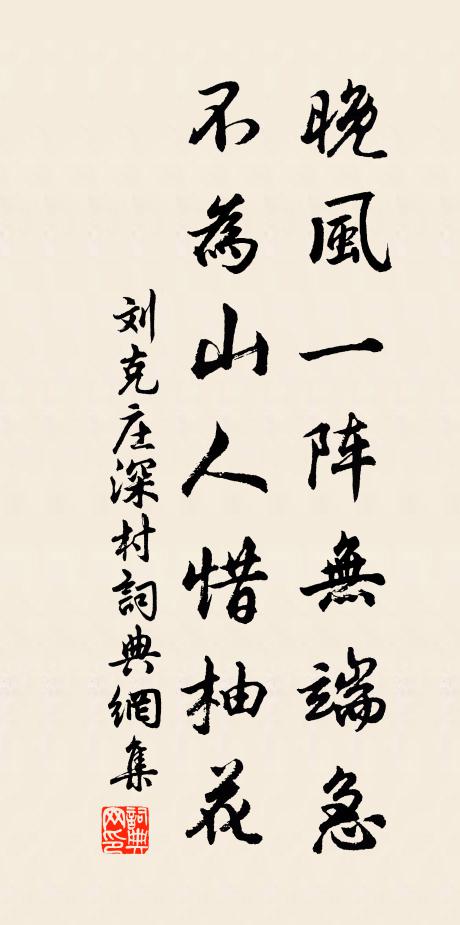 晚風一阵無端急
不為山人惜柚花
刘克庄深村詞典網集
詞典網印